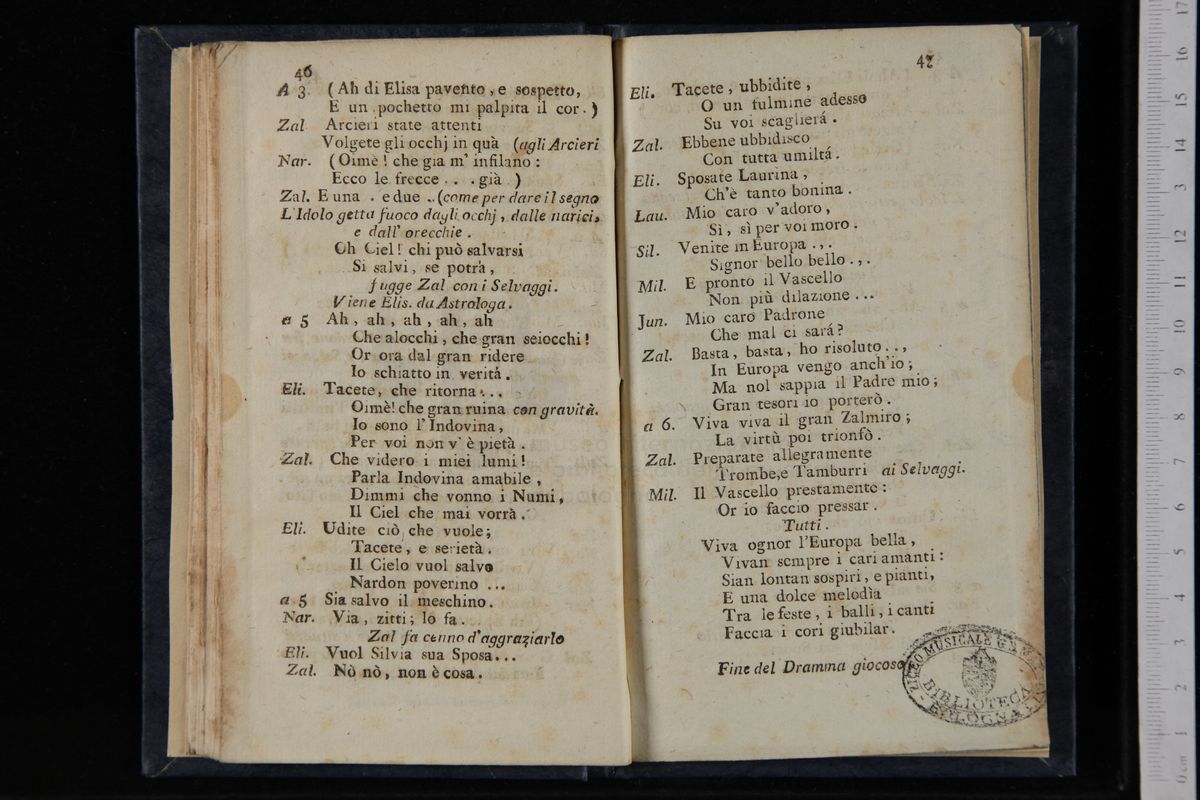 46
A 3. ( Ah di Elisa pavento , e sospetto,
E un pochetto mi palpita il cor. )
Zal Arcieri state attenti
Volgete gli occhj in quà (agli Arcieri
Nar. ( Oimè ! che gia m' infilano :
Ecco le frecce . . . già )
Zal. E una . e due .. (come per dare il segno
L'Idolo getta fuoco dagli occhj, dalle narici,
e dall' orecchie .
Oh Ciel! chi può salvarsi
Si salvi, se potrà,
fugge Zal con i Selvaggi.
Viene Elis. da Astrologa.
a 5 Ah, ah, ah, ah, ah
Che alocchi, che gran seiocchi!
Or ora dal gran ridere
Io schiatto in verità.
Eli. Tacete, che ritorna . . .
Oimè! che gran ruina con gravità.
Io sono l'Indovina,
Per voi non v' è pietà .
Zal. Che videro i miei lumi!
Parla Indovina amabile ,
Dimmi che vonno i Numi,
Il Ciel che mai vorrà .
Eli. Udite ciò che vuole;
Tacete, e serietà.
Il Cielo vuol salvo
Nardon poverino ...
a 5 Sia salvo il meschino.
Nar. Via, zitti; lo fa.
Zal fa cenno d'aggraziarlo
Eli. Vuol Silvia sua Sposa...
Zal. Nò nò, non è cosa.
47
Eli. Tacete, ubbidite ,
O un fulmine adesso
Su voi scaglierá .
Zal. Ebbene ubbidisco
Con tutta umiltá.
Eli. Sposate Laurina ,
Ch'è tanto bonina .
Lau. Mio caro v'adoro,
Sì, sì per voi moro.
Sil. Venite in Europa . , .
Signor bello bello . , .
Mil. E pronto il Vascello
Non più dilazione ...
Jun. Mio caro Padrone
Che mal ci sará?
Zal. Basta, basta, ho risoluto . . ,
In Europa vengo anch'io;
Ma nol sappia il Padre mio;
Gran tesori io porterò .
a 6. Viva viva il gran Zalmiro ;
La virtù poi trionfò .
Zal. Preparate allegramente
Trombe,e Tamburri ai Selvaggi.
Mil. Il Vascello prestamente :
Or io faccio pressar .
Tutti .
Viva ognor l'Europa bella ,
Vivan sempre i cari amanti :
Sian lontan sospiri, e pianti,
E una dolce melodìa
Tra le feste , i balli, i canti
Faccia i cori giubilar.
Fine del Dramma giocoso
LICEO MUSICALE
BIBLIOTECA
BOLOGNA
0 cm 1 2 3 4 5 6 7 8 9 10 11 12 13 14 15 16 17